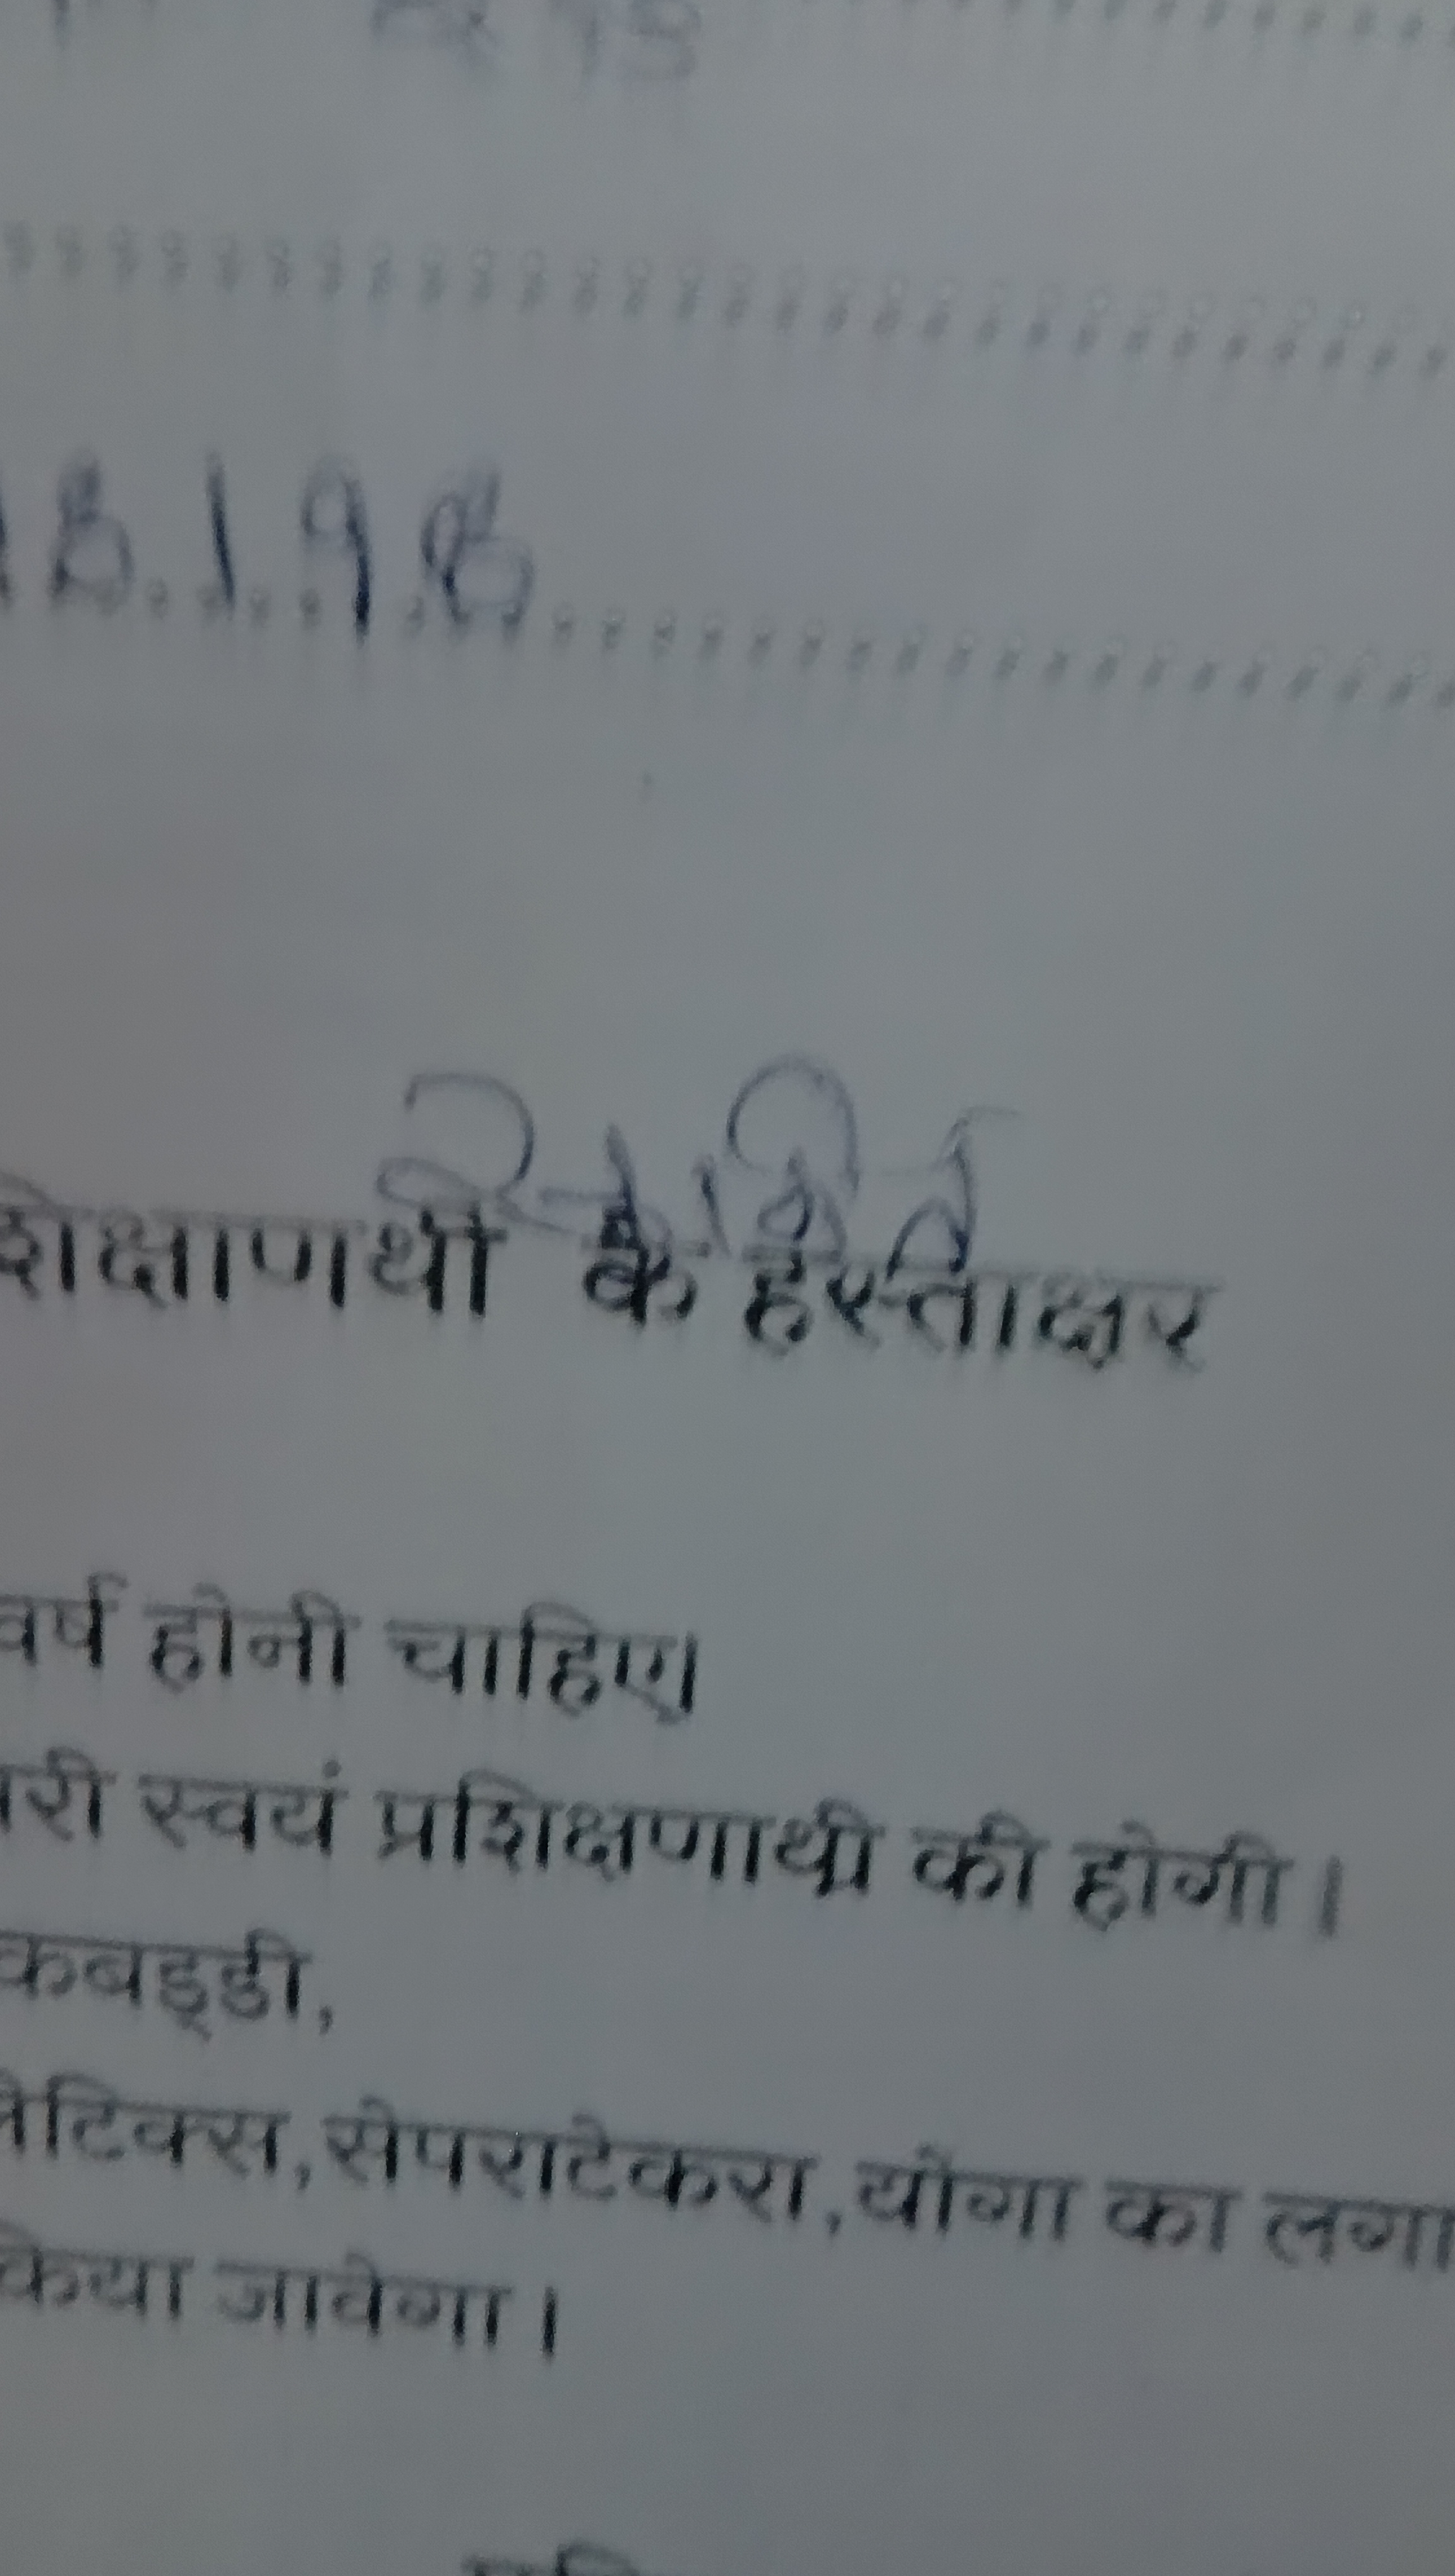 8198
शिक्षाणर्थी के हस्ताक्षर
वर्ष होनी चाहिए।
स्वयं प्रशिक्षणार्थी की होगी।
कबड्डी,
सेपराटेकरा,योगा का लगा
किया जावेगा।